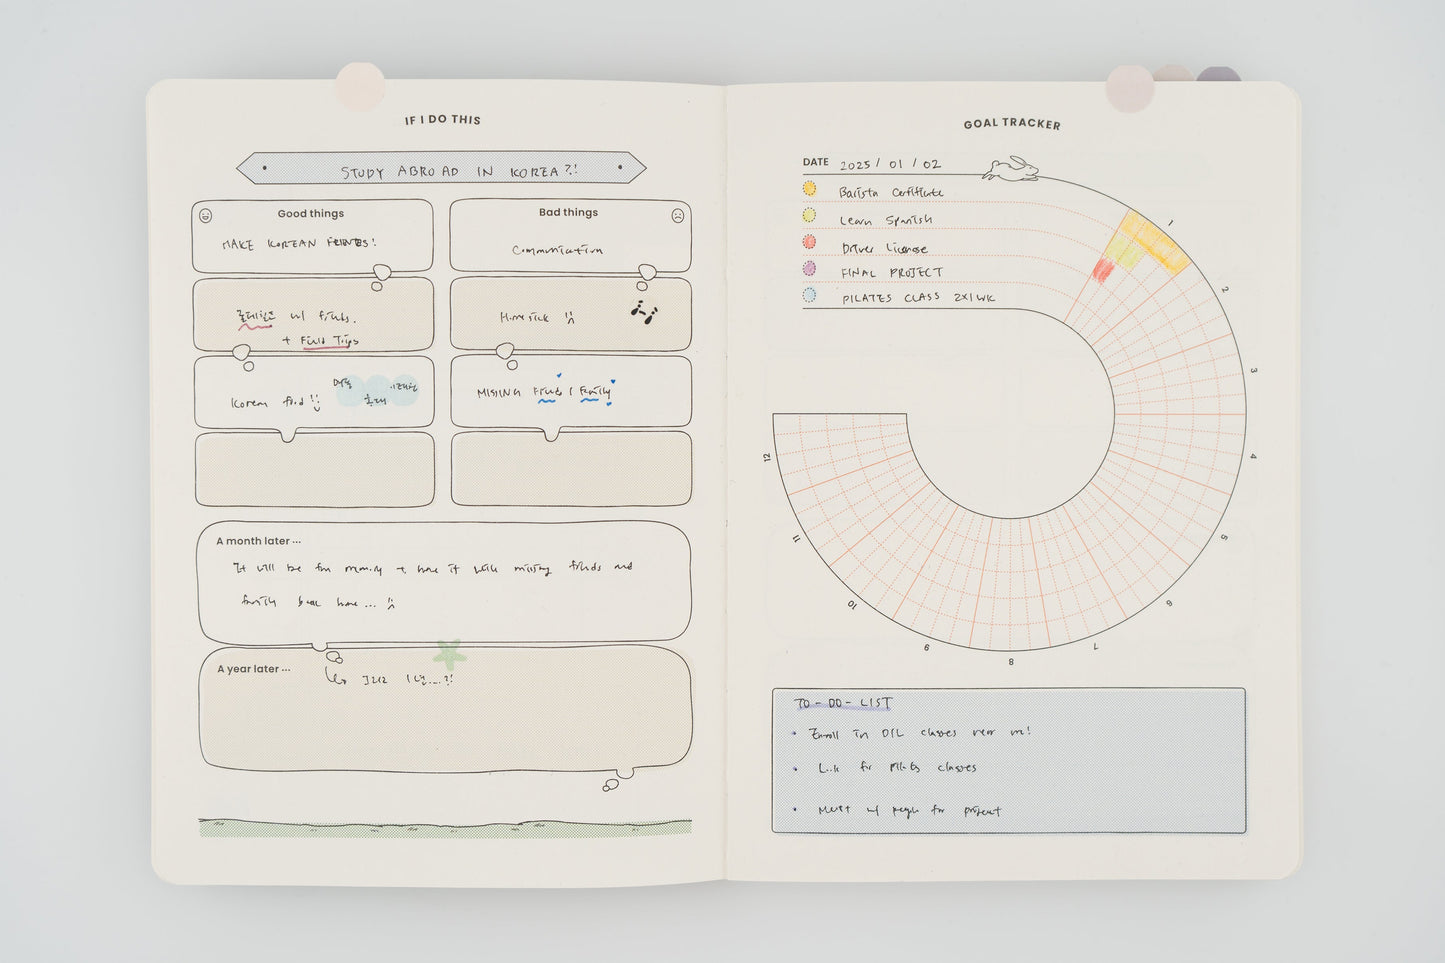 IF I DO THIS
STUDY ABROAD IN KOREA?!
Good things
MAKE KOREAN FRIENDS!
w/ friends.
+ Field Trips
Korean food !!
Bad things
Communication
Homesick
MISSING Friends / Family
A month later ...
It will be fun memory + have it while missing friends and
family back home ...
A year later ...
GOAL TRACKER
DATE 2025 / 01 / 02
Barista Certificate
Learn Spanish
Driver License
FINAL PROJECT
PILATES CLASS 2X1WK
1
2
3
4
5
6
7
8
9
10
11
12
TO-DO-LIST
• Enroll in classes near me!
• Look for pilates classes
• Meet w/ people for project